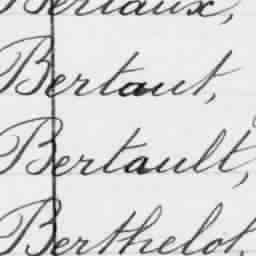 Bertaux,
Bertaut,
Bertault,
Berthelot,